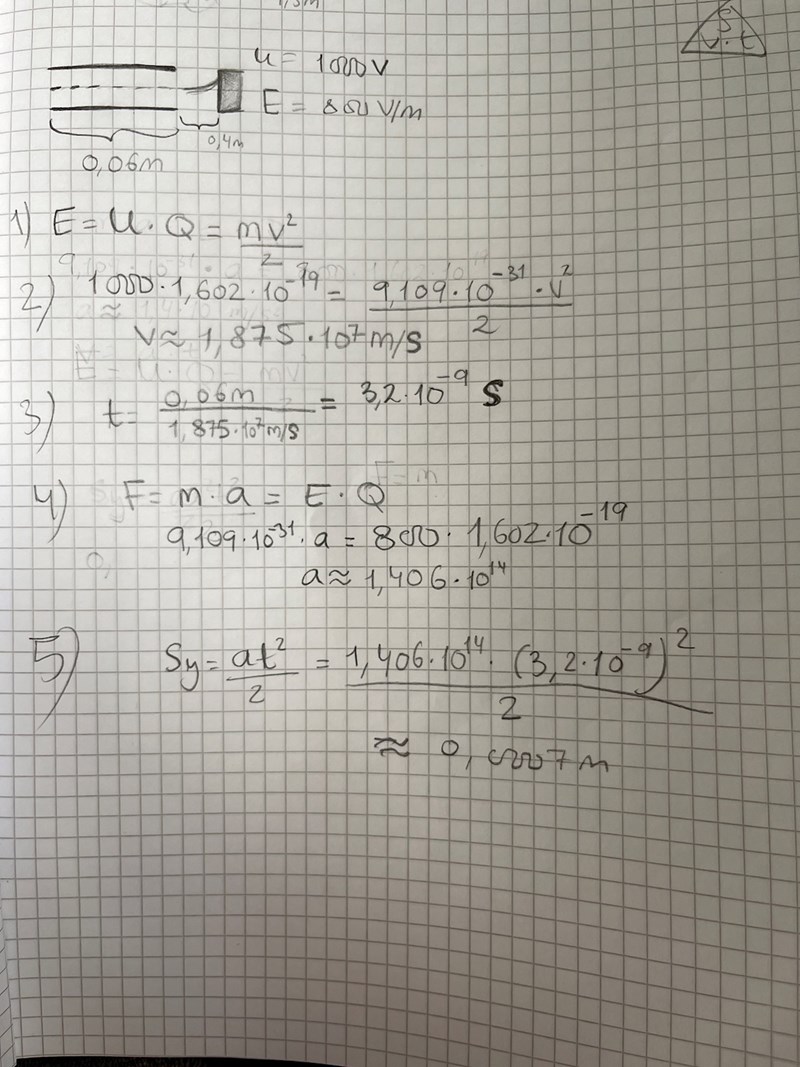 S
v·t
U = 1000V
E = 800 V/m
0,4m
0,06m
1) E = U·Q = mv²/2
2) 1000·1,602·10⁻¹⁹ = 9,109·10⁻³¹·v²/2
v ≈ 1,875·10⁷ m/s
3) t = 0,06m/1,875·10⁷m/s = 3,2·10⁻⁹ s
4) F = m·a = E·Q
9,109·10⁻³¹·a = 800·1,602·10⁻¹⁹
a ≈ 1,406·10¹⁴
5) Sy = at²/2 = 1,406·10¹⁴·(3,2·10⁻⁹)²/2
≈ 0,0007m